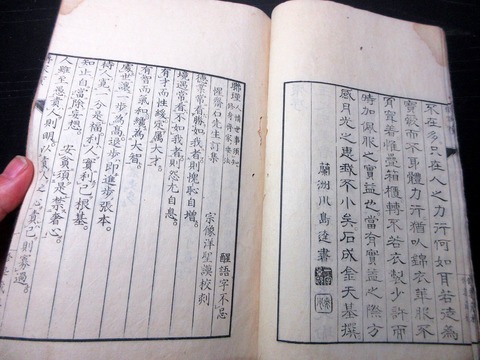 不在多只在人之力行何如耳若徒爲
寶藏而不身體力行猶以錦衣華服不
實穿著惟疊箱櫃轉不若衣製少許而
時加佩服之實益也當有實益之際方
感月光之惠我不小矣石成金天基撰
蘭洲川島達書
聯瑾 人情世事須知
身齊家要法 醒語字不忌
惺齋石先生訂集
宗像洋聖謨校刻
德業常看勝如我者則愧恥自增。
境遇常看不如我者則怨尤自息。
有才而性緩定屬大才。
有智而氣和纔爲大智。
處世讓一步爲高退步即進步張本。
待人寬一分是福利人實利己根基。
知止自當除妄想。安貧須是禁奢心。
人雖至愚責人則明。以責人之心責己則寡過。